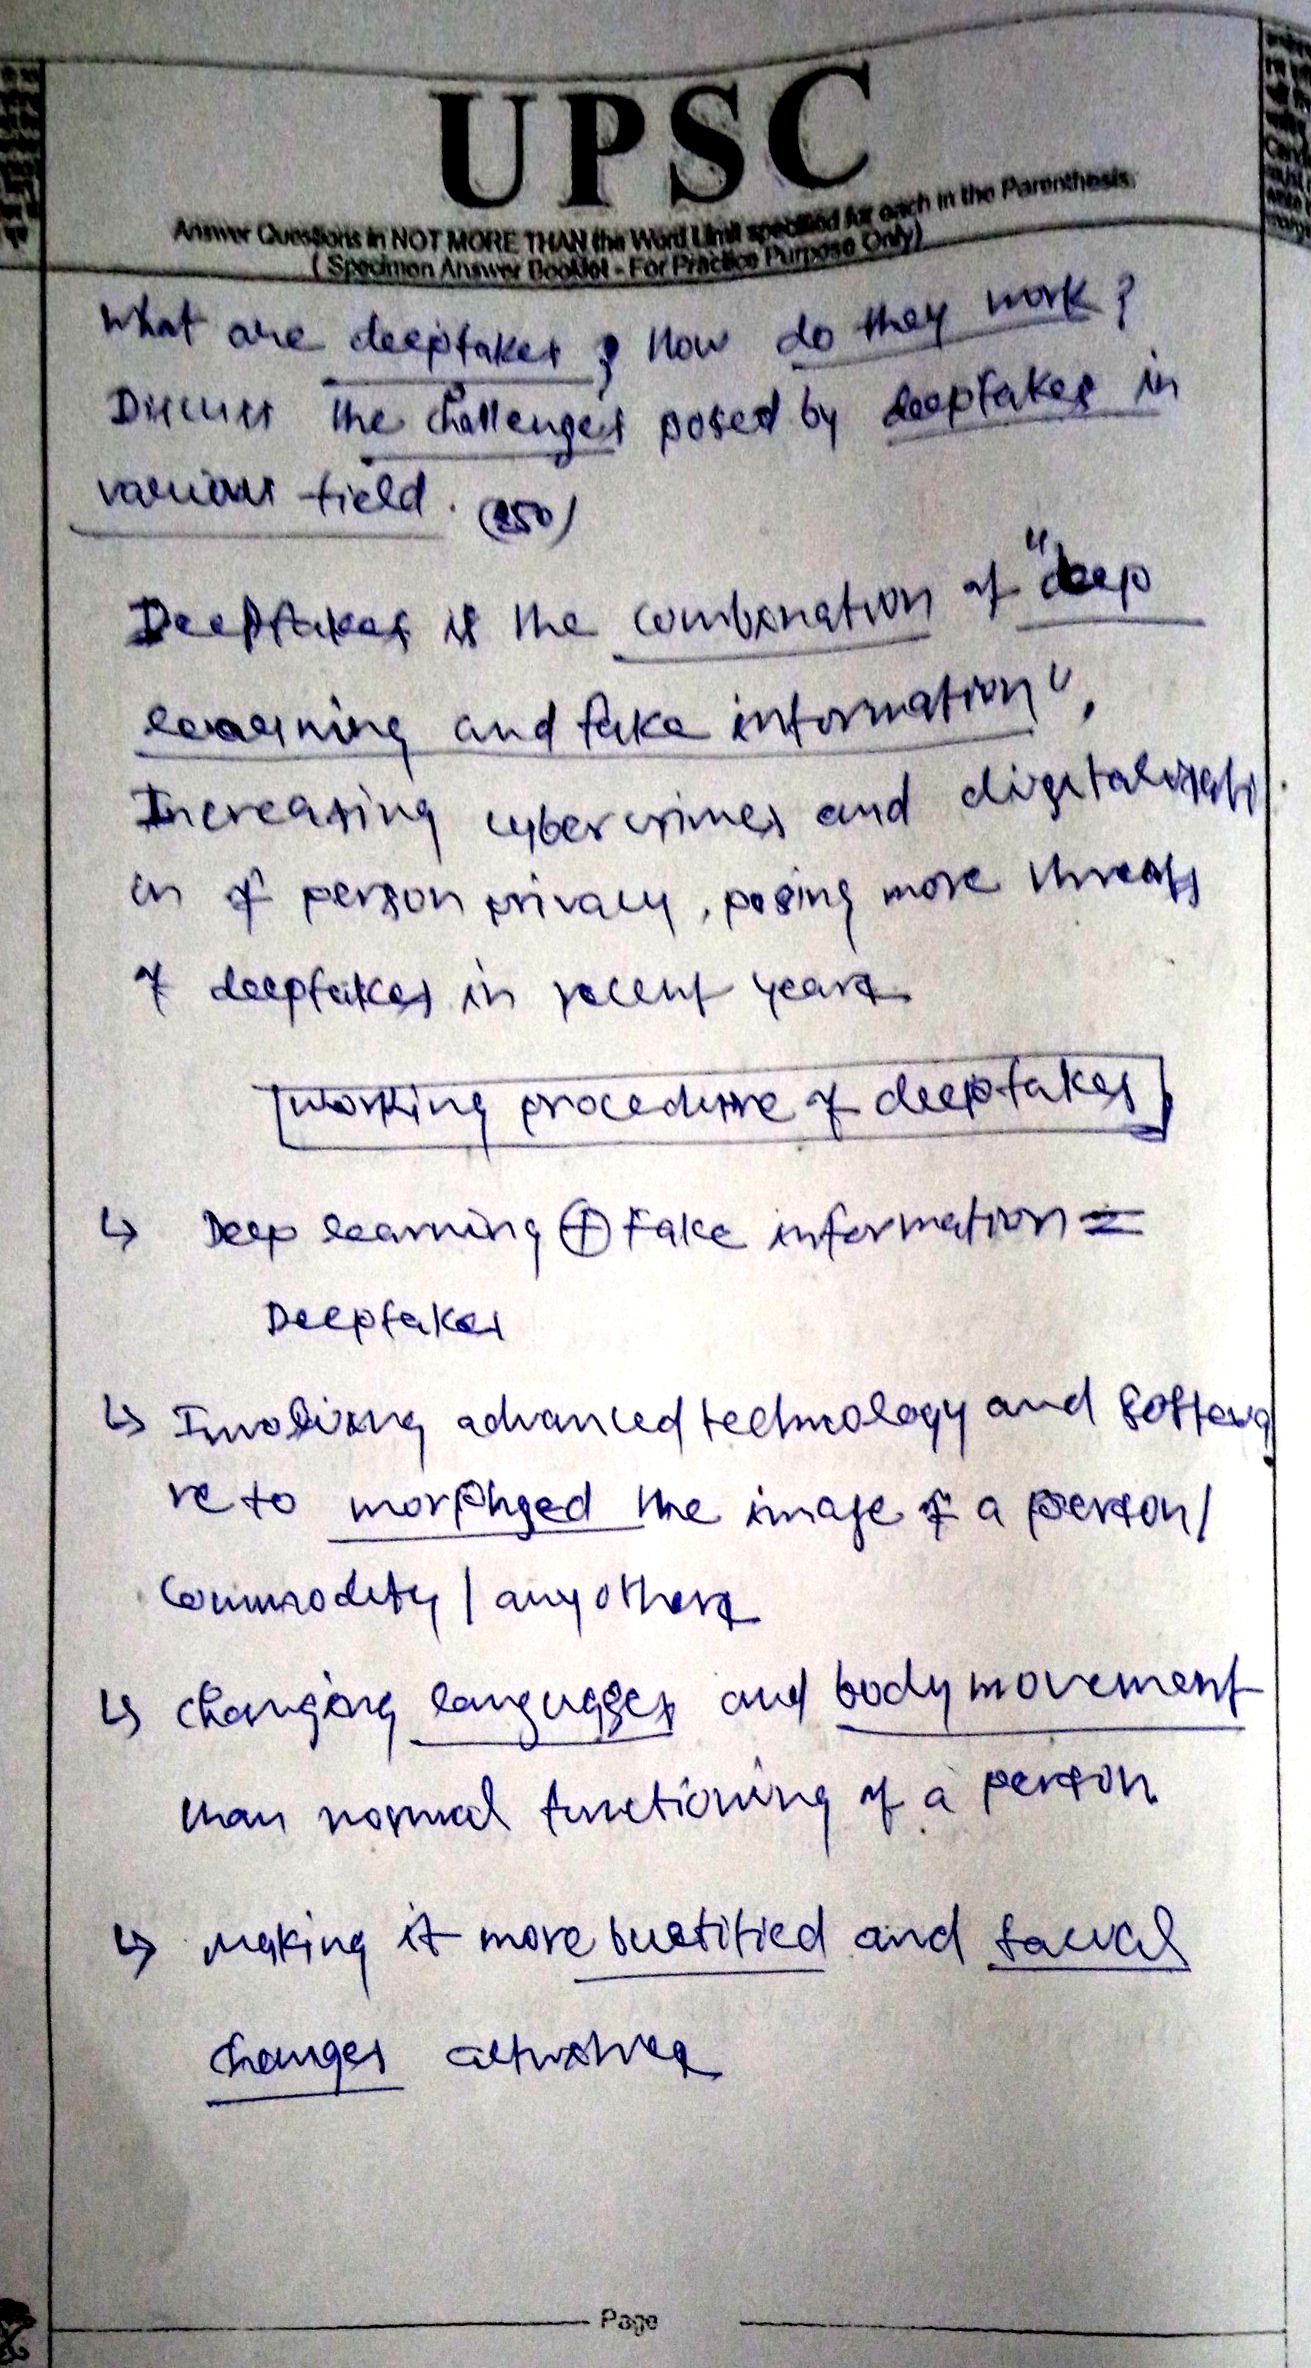 UPSC
Answer Questions in NOT MORE THAN the Word Limit specified for each in the Parenthesis.
( Specimen Answer Booklet - For Practice Purpose Only)
What are deepfakes ? How do they work ?
Discuss the challenges posed by deepfakes in
various field. (250)
Deepfakes is the combination of "deep
learning and fake information",
Increasing cybercrimes and digitalisati
on of person privacy, posing more threats
of deepfakes in recent years
Working procedure of deepfakes
↳ Deep learning ⊕ Fake information =
Deepfakes
↳ Involving advanced technology and softewa
re to morphged the image of a person/
commodity / any others
↳ changing languages and body movement
than normal functioning of a person
↳ Making it more buetified and facial
changes
Page